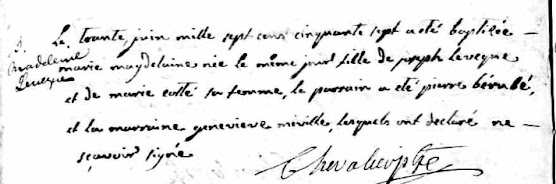 B.
Madeleine
Leveque
Le trante, juin mille sept cens cinquante sept a été baptisée
marie magdelaine née le même jour fille de joseph Leveque
et de marie cotté sa femme, le parrain a été pierre bérubé,
et la marraine genevieve miville, lesquels ont declaré ne
sçavoir signé
Chevalier ptre